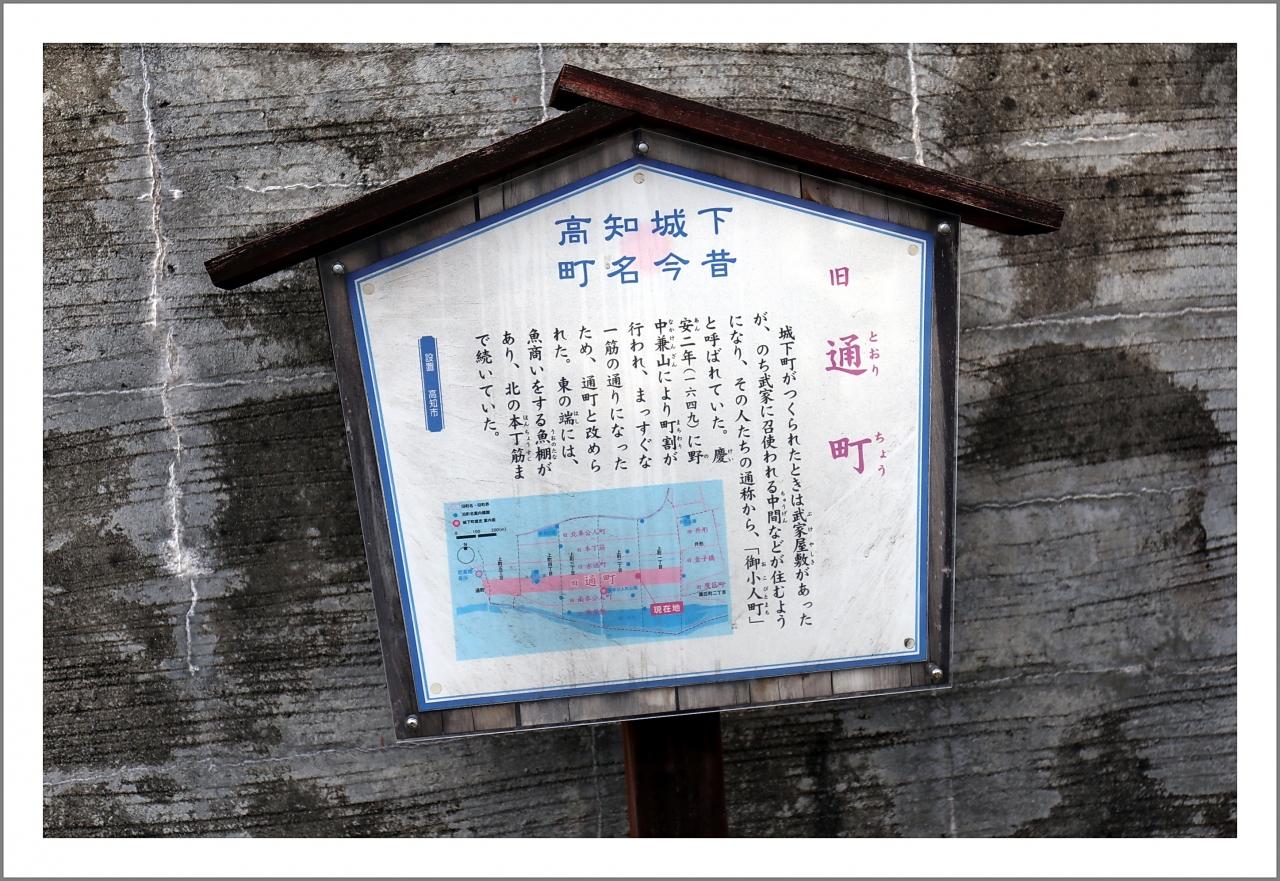 高知城下
町名今昔
旧
通町
とおり
ちょう
城下町がつくられたときは武家屋敷があった
が、のち武家に召使われる中間などが住むよう
になり、その人たちの通称から、「御小人町」
と呼ばれていた。慶
安二年(一六四九)に野
中兼山により町割が
行われ、まっすぐな
一筋の通りになった
ため、通町と改めら
れた。東の端には、
魚商いをする魚棚が
あり、北の本丁筋ま
で続いていた。
設置 高知市
旧北奉公人町
旧本丁筋
旧水通町
旧通町
旧南奉公人町
通町
現在地